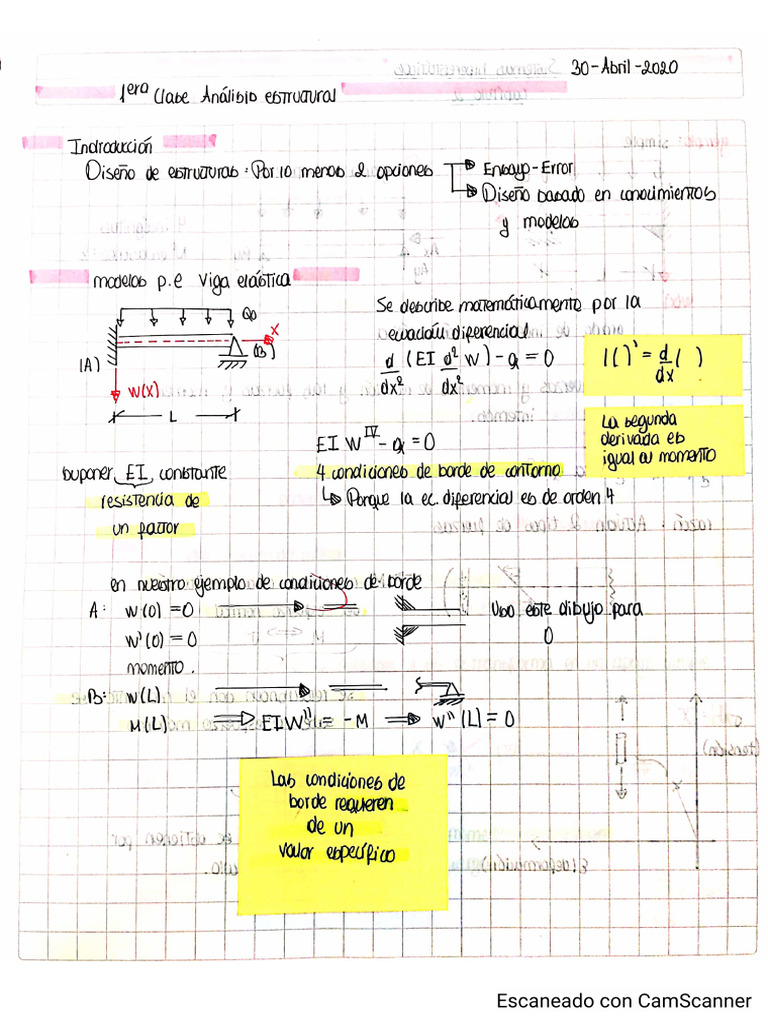 30-Abril-2020
1era Clase Análisis estructural
Indroducción
Diseño de estructuras: Por lo menos 2 opciones
Ensayo-Error
Diseño basado en conocimientos
y modelos
modelos p.e Viga elástica
Qo
X
(A)
(B)
W(X)
L
Se describe matemáticamente por la
ecuación diferencial
d/dx² (EI d²/dx² W) - q = 0
( )' = d/dx ( )
La segunda
derivada es
igual al momento
EI W^IV - q = 0
suponer EI, constante
4 condiciones de borde de contorno
resistencia de
un factor
Porque la ec. diferencial es de orden 4
en nuestro ejemplo de condiciones de borde
A: W(0) = 0
Uso este dibujo para
0
W'(0) = 0
momento.
B: W(L)
M(L) ⇒ EIW'' = -M ⇒ W''(L) = 0
Las condiciones de
borde requieren
de un
valor específico
Escaneado con CamScanner